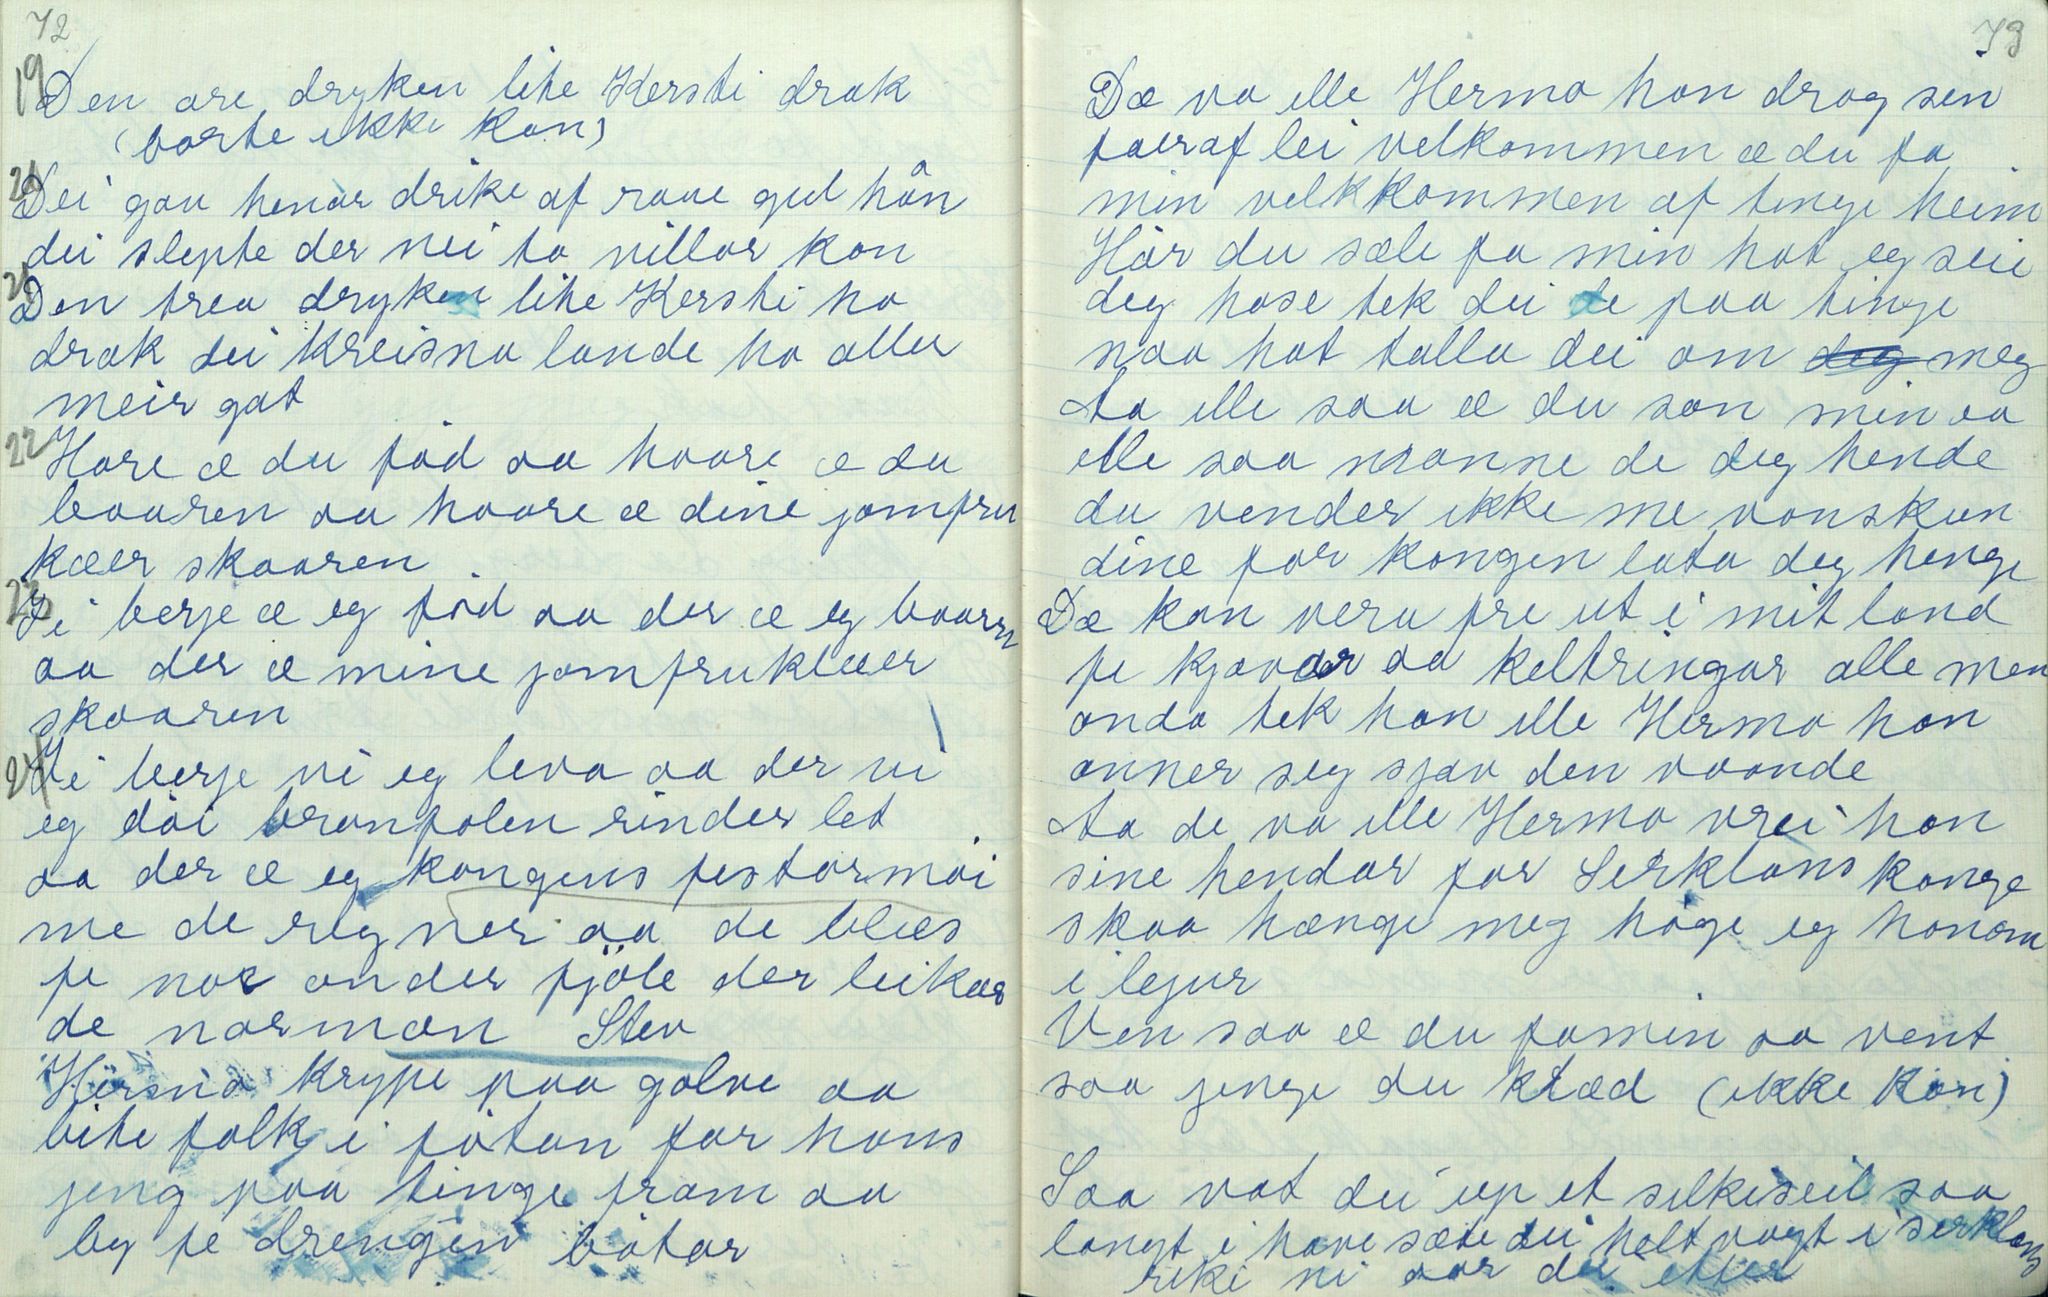 72
19 Den are dryken lite Kersti drak
(borte ikke kan)
20 Dei gav henar drike af raae gul hån
dei slepte der nei to villar kon
21 Den trea dryken lite Kersti ho
drak dei kreisna lande ho aller
meir gat
22 Hare æ du föd aa haare æ du
baaren aa haare æ dine jomfru
klæer skaaren
23 I berje æ eg född aa der æ eg baaren
aa der æ mine jomfruklæer
skaaren
24 I berje vi eg leva aa der vi
eg döi bronfolen rinder let
aa der æ eg kongens festarmöi
me de regner aa de blæs
fe nor onder fjöle der leikar
de norman Stev
Hermo krype paa golve aa
bite folk i fötan for hans
jeng paa tinge fram aa
by fe drengen bötar
73
Dæ va ille Hermo han drog sen
faeraf lei velkommen æ du fa
min velkkommen af tinge heim
Hör du sæle fa min hot eg seie
deg hose tek dei de paa tinge
naa hot talla dei om meg
Ta ille saa æ du son min aa
ille saa manne de deg hende
du vender ikke me vonskun
dine for kongen lata deg henge
Dæ kan vera fre ut i mit land
fe kjavar aa keltringar alle men
anda tek han ille Hermo han
anner seg sjav den vaande
Ta de va ille Hermo vrei han
sine hendar for Serklans konge
skaa hænge meg höge eg honom
i lejur
Ven saa æ du famin aa vent
saa jenge du klæd (ikke kan)
Saa vat dei up et silkiseil saa
langt i have sæte dei helt vagt i serklans
riki ni aar dei etter